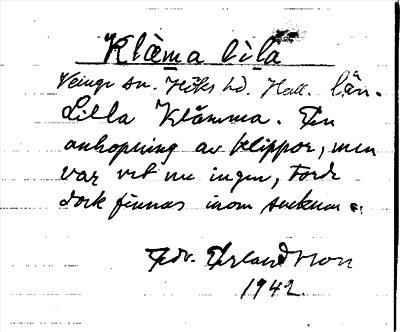 Klæma lila
Veinge sn. Höks hd. Hall. län.
Lilla Klämma. En
anhopning av klippor, men
var vet nu ingen, torde
dock finnas inom socknen.
Edv. Erlandsson
1942.